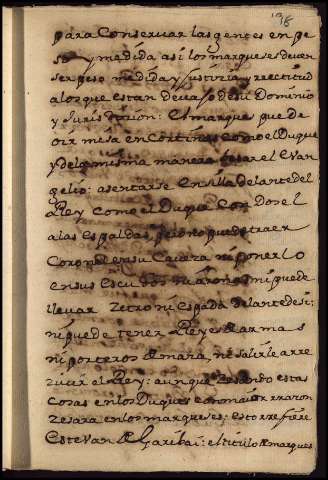 18
para Conservar las gentes en pe
so y medida así los marqueses deven
ser peso medida y justicia y rectitud
a los que estan devaxo de su Dominio
y Jurisdicion: Es marques puede
oir misa en Cortinas como el Duque
y de la misma manera besar el Evan
gelio: asentarse en silla delante del
Rey como el Duque con Dosel
a las Espaldas pero no puede traer
Coronel en su Caveza ni ponerlo
en sus Escudos ni armas ni puede
llevar Zetro ni Espada delante de si:
ni puede tener Reyes de armas
ni porteros de maza, ni salirle a re
zivir el Rey: aunque zesando estas
cosas en los Duques con maior razon
zesara en los marqueses: esto refiere
Estevan de Garibai: el titulo de marques